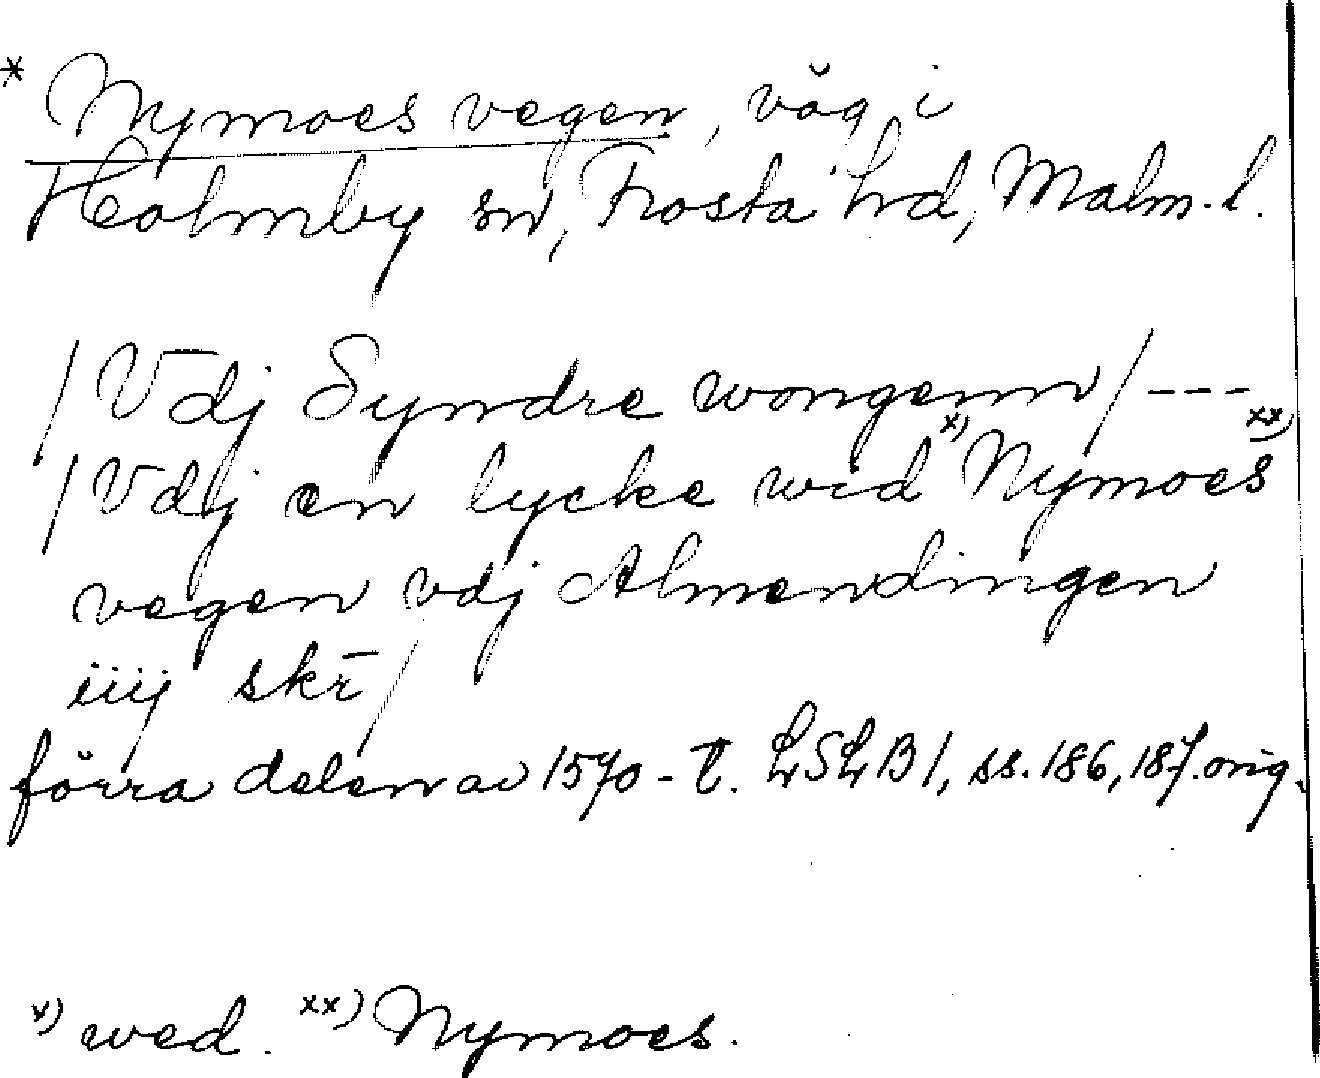 * Nymoes vegen, väg i
Holmby sn, Frosta hd, Malm. l.
/Vdj Syndre wongenn/---
/Vdj en lycke wed x) Nymoes xx)
vegen vdj Almendingen
iiij skr̄/
förra delen av 1570-t. LSLB 1, ss. 186, 187. orig.
x) wed. xx) Nymoes.